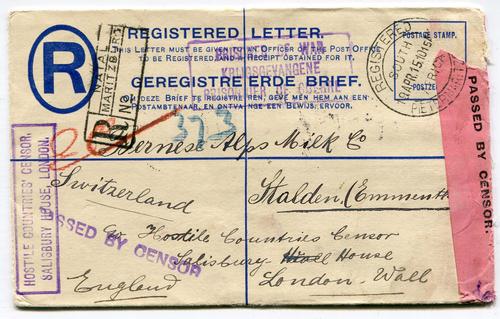 REGISTERED LETTER.
THIS LETTER MUST BE GIVEN TO AN OFFICER OF THE POST OFFICE
TO BE REGISTERED, AND A RECEIPT OBTAINED FOR IT.
GEREGISTREERDE BRIEF.
OM DEZE BRIEF TE REGISTREREN, GEVE MEN HEM AAN EEN
POSTAMBTENAAR, EN ONTVANGE EEN BEWIJS ERVOOR.
POSTAGE STAMP.
R
NATAL
MARITZBURG
R
No
PRISONER OF WAR
KRIJGSGEVANGENE
PRISONNIER DE GUERRE
REGISTERED
SOUTH AFRICA
PASSED BY CENSOR.
373
Bernese Alps Milk Co
Switzerland
Stalden (Emmenth
HOSTILE COUNTRIES' CENSOR,
SALISBURY HOUSE, LONDON.
PASSED BY CENSOR
C/o Hostile Countries Censor
Salisbury House
England
London. Wall